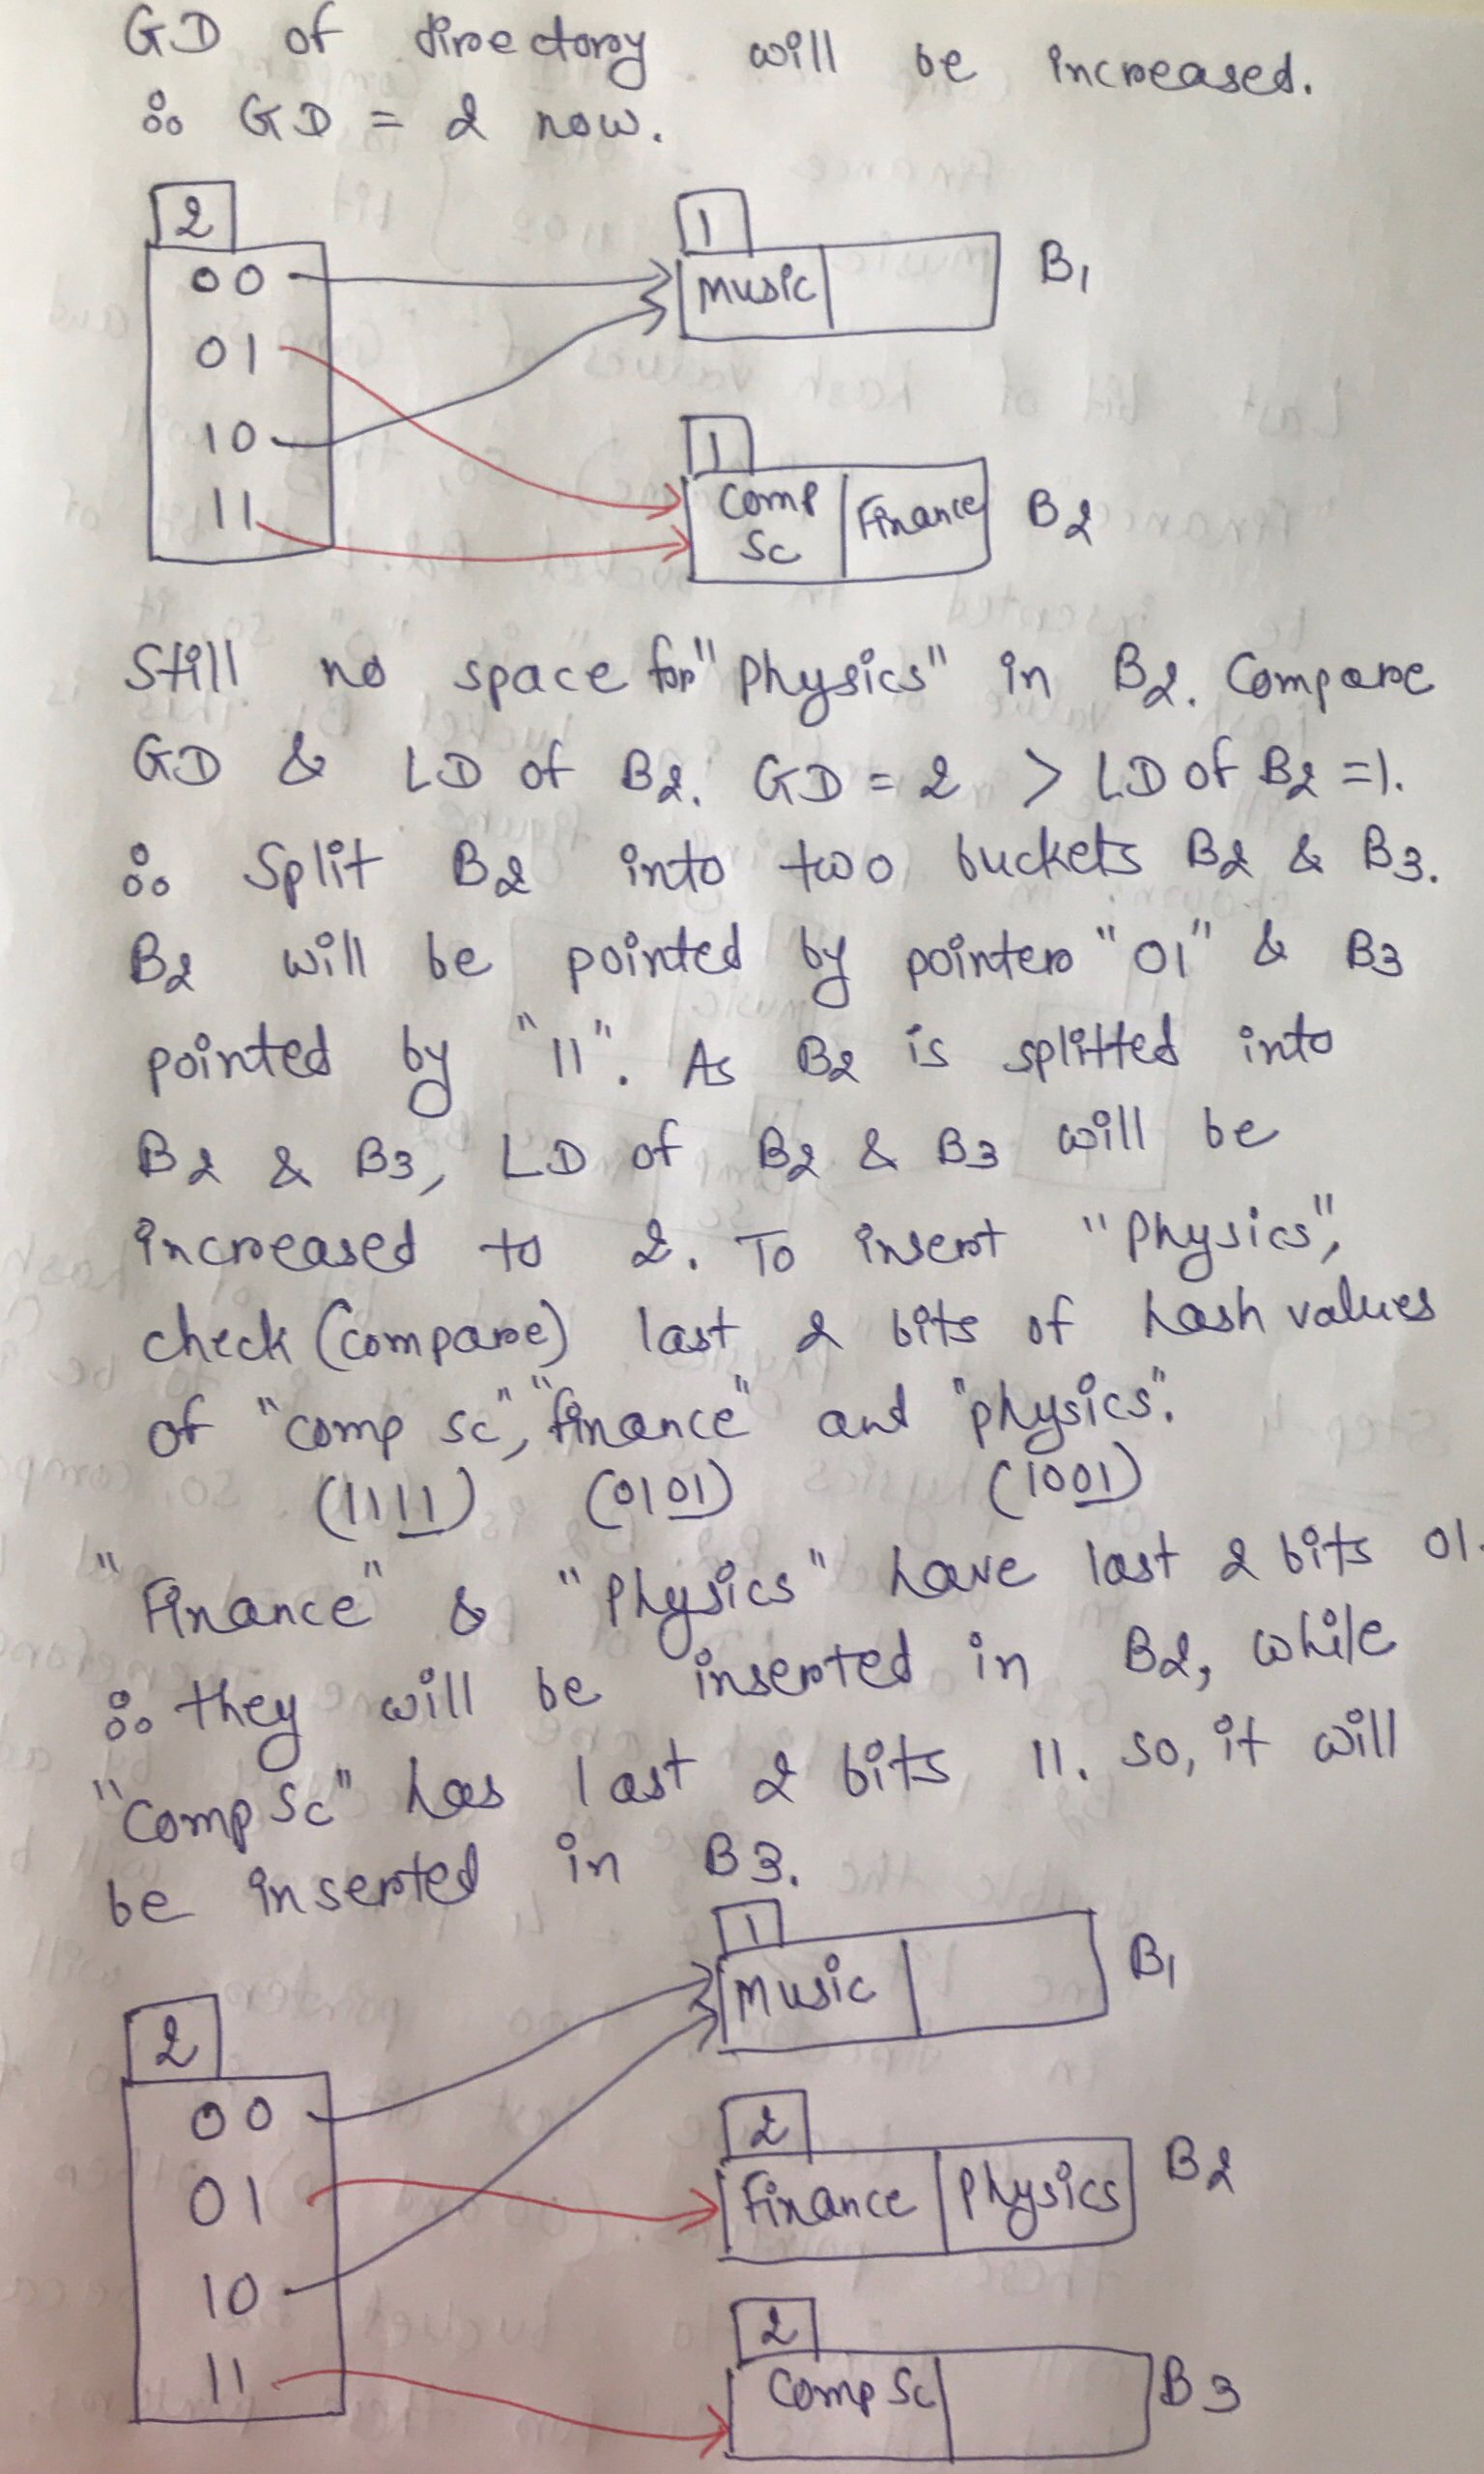 GD of directory will be increased.
∴ GD = 2 now.
2
00
01
10
11
1
Music
B1
1
Comp Sc
Finance
B2
Still no space for "Physics" in B2. Compare
GD & LD of B2. GD = 2 > LD of B2 = 1.
∴ Split B2 into two buckets B2 & B3.
B2 will be pointed by pointer "01" & B3
pointed by "11". As B2 is splitted into
B2 & B3, LD of B2 & B3 will be
increased to 2. To insert "Physics",
check (compare) last 2 bits of hash values
of "comp sc", "finance" and "physics".
(1111) (0101) (1001)
"Finance" & "Physics" have last 2 bits 01.
∴ they will be inserted in B2, while
"Comp Sc" has last 2 bits 11. So, it will
be inserted in B3.
2
00
01
10
11
1
Music
B1
2
Finance
Physics
B2
2
Comp Sc
B3